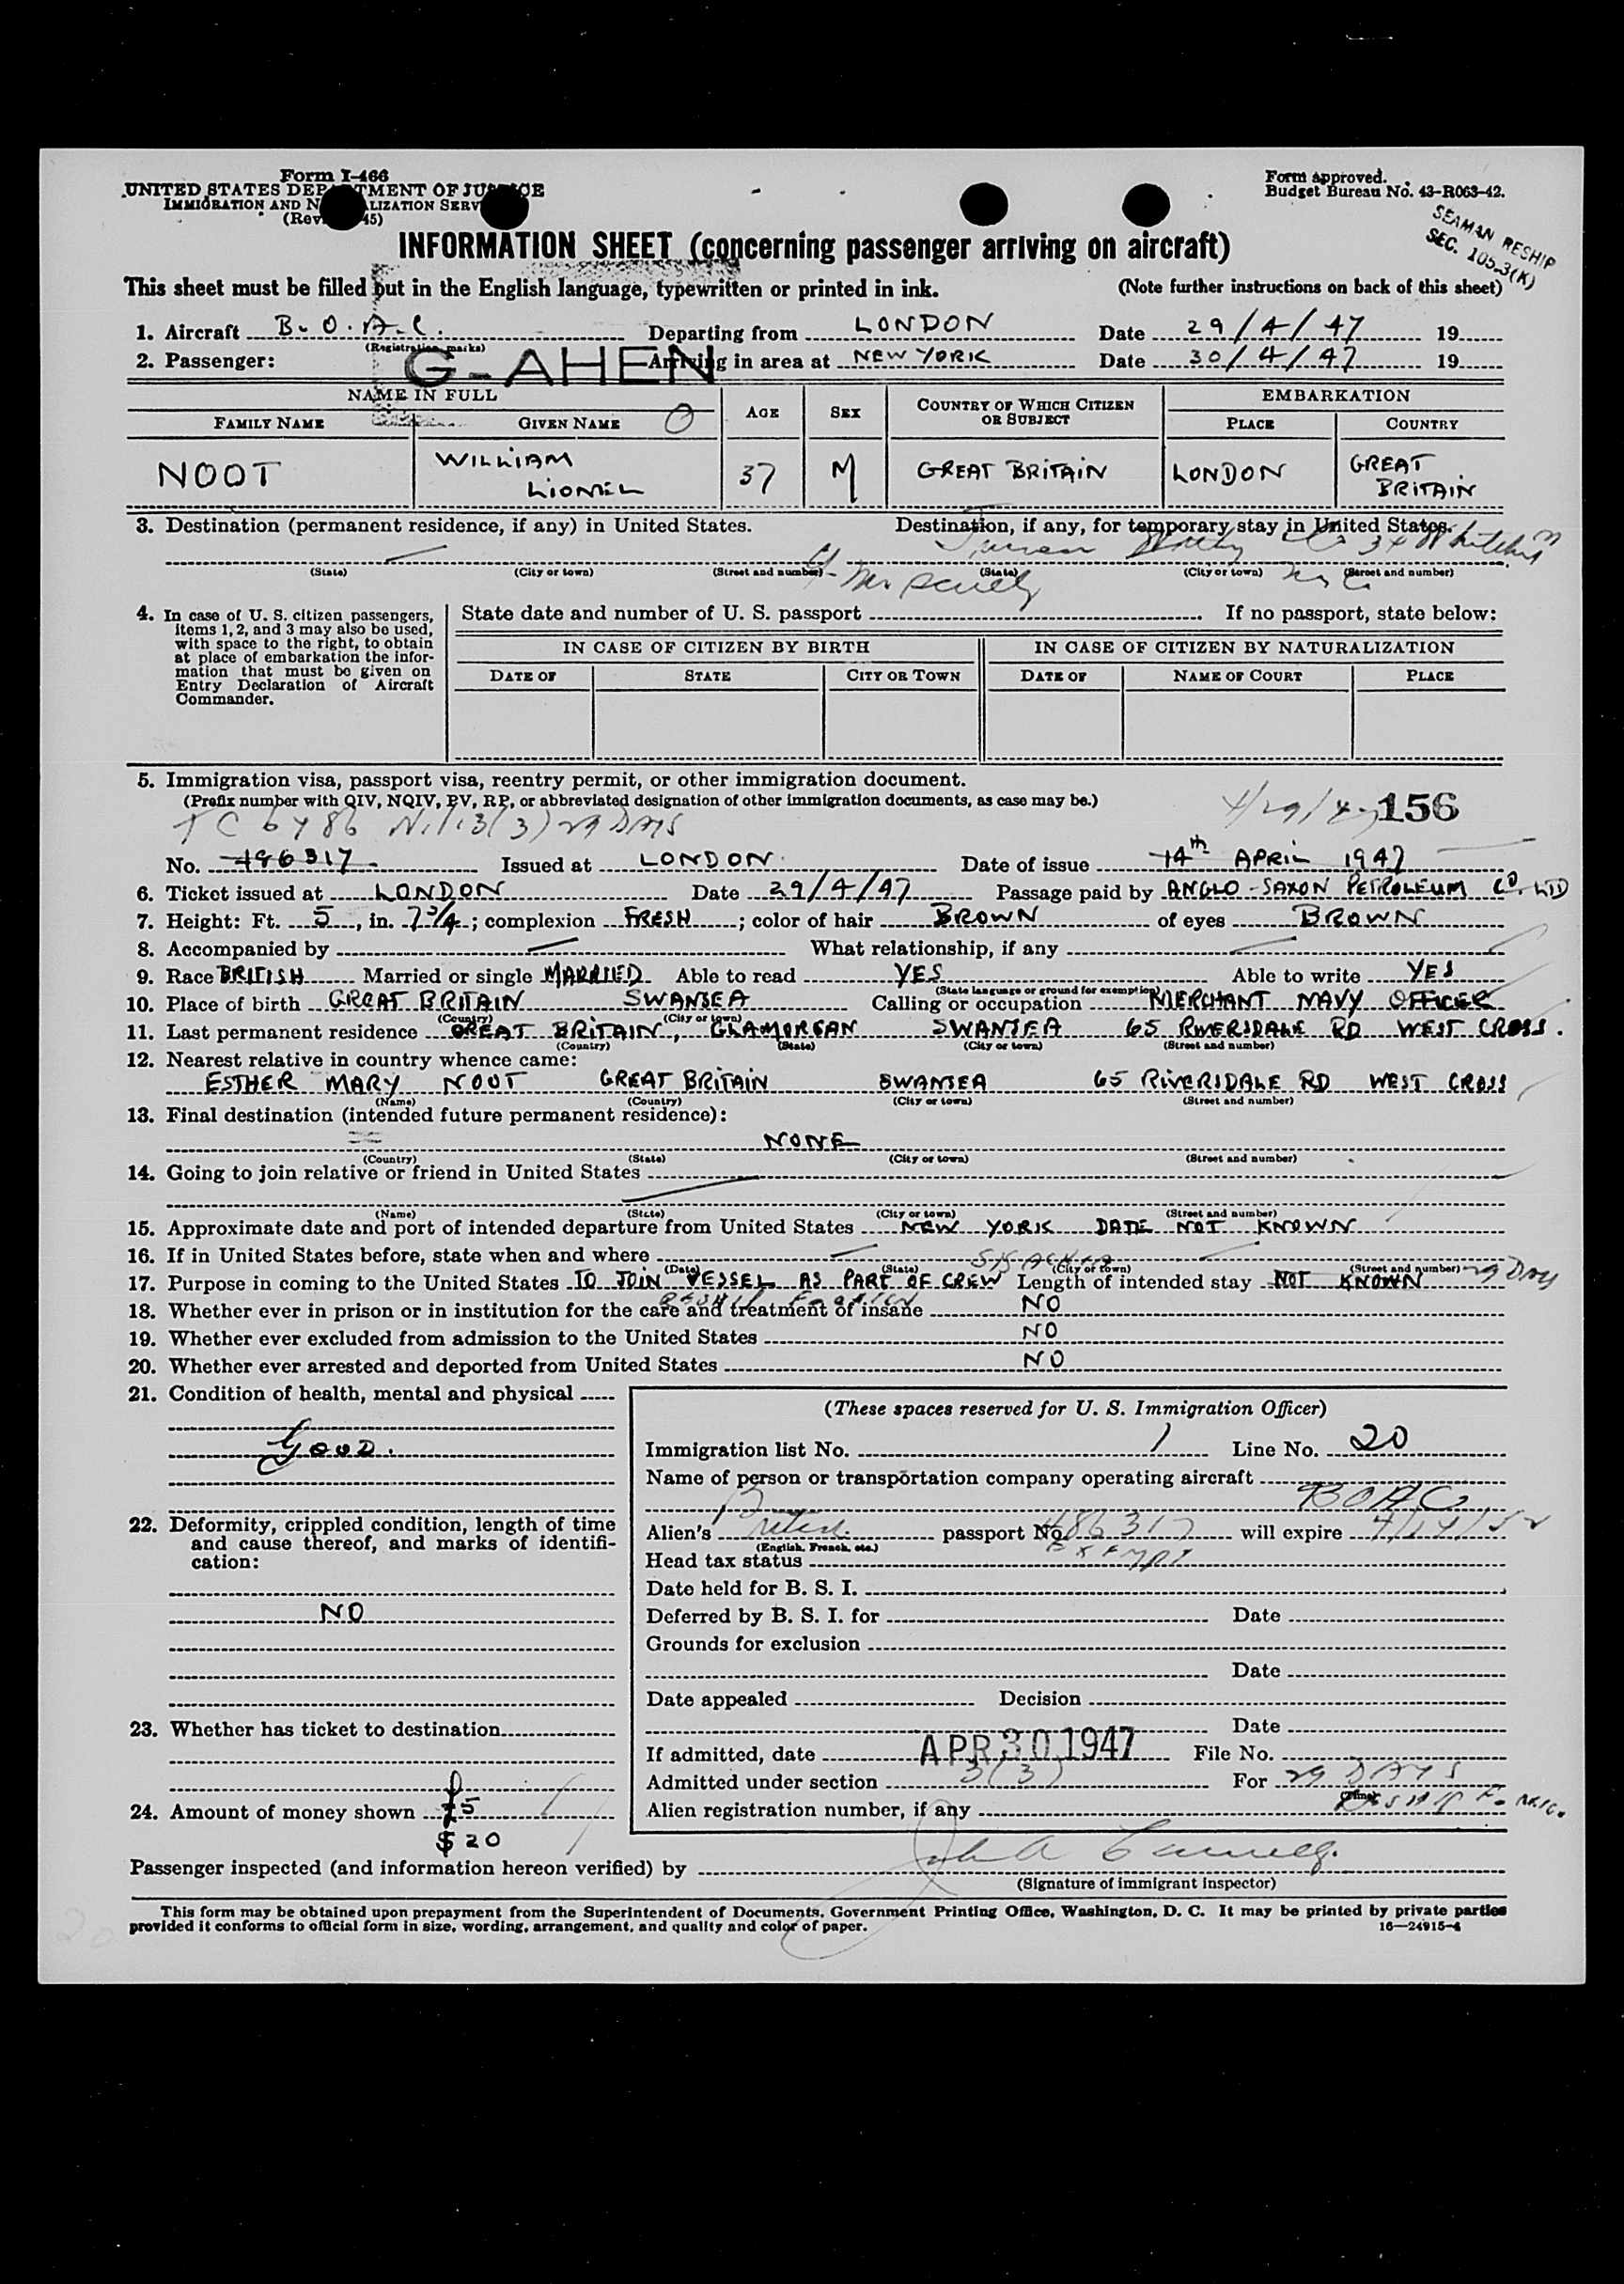 Form I-466
UNITED STATES DEPARTMENT OF JUSTICE
IMMIGRATION AND NATURALIZATION SERV
(Rev. 45)
Form approved.
Budget Bureau No. 43-R063-42.
SEAMAN RESHIP
SEC. 105-3(K)
INFORMATION SHEET (concerning passenger arriving on aircraft)
This sheet must be filled out in the English language, typewritten or printed in ink. (Note further instructions on back of this sheet)
1. Aircraft B.O.A.C. Departing from LONDON Date 29/4/47 19
(Registration marks)
2. Passenger: G-AHEN Arriving in area at NEW YORK Date 30/4/47 19
NAME IN FULL AGE SEX COUNTRY OF WHICH CITIZEN OR SUBJECT EMBARKATION
FAMILY NAME GIVEN NAME PLACE COUNTRY
NOOT WILLIAM LIONEL 37 M GREAT BRITAIN LONDON GREAT BRITAIN
3. Destination (permanent residence, if any) in United States. Destination, if any, for temporary stay in United States.
(State) (City or town) (Street and number) (State) (City or town) (Street and number)
4. In case of U. S. citizen passengers,
items 1, 2, and 3 may also be used,
with space to the right, to obtain
at place of embarkation the infor-
mation that must be given on
Entry Declaration of Aircraft
Commander.
State date and number of U. S. passport If no passport, state below:
IN CASE OF CITIZEN BY BIRTH IN CASE OF CITIZEN BY NATURALIZATION
DATE OF STATE CITY OR TOWN DATE OF NAME OF COURT PLACE
5. Immigration visa, passport visa, reentry permit, or other immigration document.
(Prefix number with QIV, NQIV, PV, RP, or abbreviated designation of other immigration documents, as case may be.)
4/29/47 156
3(3) 29 DAYS
No. 486317 Issued at LONDON Date of issue 14th APRIL 1947
6. Ticket issued at LONDON Date 29/4/47 Passage paid by ANGLO-SAXON PETROLEUM CO. LTD
7. Height: Ft. 5, in. 7 3/4; complexion FRESH; color of hair BROWN of eyes BROWN
8. Accompanied by What relationship, if any
9. Race BRITISH Married or single MARRIED Able to read YES Able to write YES
(State language or ground for exemption)
10. Place of birth GREAT BRITAIN SWANSEA Calling or occupation MERCHANT NAVY OFFICER
(Country) (City or town)
11. Last permanent residence GREAT BRITAIN, GLAMORGAN SWANSEA 65 RIVERSDALE RD WEST CROSS.
(Country) (State) (City or town) (Street and number)
12. Nearest relative in country whence came:
ESTHER MARY NOOT GREAT BRITAIN SWANSEA 65 RIVERSDALE RD WEST CROSS
(Name) (Country) (City or town) (Street and number)
13. Final destination (intended future permanent residence):
NONE
(Country) (State) (City or town) (Street and number)
14. Going to join relative or friend in United States
(Name) (State) (City or town) (Street and number)
15. Approximate date and port of intended departure from United States NEW YORK DATE NOT KNOWN
16. If in United States before, state when and where
(Date) (State) (City or town) (Street and number)
17. Purpose in coming to the United States TO JOIN VESSEL AS PART OF CREW Length of intended stay NOT KNOWN 29 DAY
18. Whether ever in prison or in institution for the care and treatment of insane NO
19. Whether ever excluded from admission to the United States NO
20. Whether ever arrested and deported from United States NO
21. Condition of health, mental and physical
GOOD.
22. Deformity, crippled condition, length of time
and cause thereof, and marks of identifi-
cation:
NO
23. Whether has ticket to destination
24. Amount of money shown £5
$20
(These spaces reserved for U. S. Immigration Officer)
Immigration list No. 1 Line No. 20
Name of person or transportation company operating aircraft
BOAC
Alien's British passport No. 486317 will expire 4/14/52
(English, French, etc.)
Head tax status EXEMPT
Date held for B. S. I.
Deferred by B. S. I. for Date
Grounds for exclusion
Date
Date appealed Decision
Date
If admitted, date APR 30 1947 File No.
Admitted under section 3(3) For 29 DAYS
(Time)
Alien registration number, if any
Passenger inspected (and information hereon verified) by
(Signature of immigrant inspector)
This form may be obtained upon prepayment from the Superintendent of Documents, Government Printing Office, Washington, D. C. It may be printed by private parties
provided it conforms to official form in size, wording, arrangement, and quality and color of paper. 16—24915-4